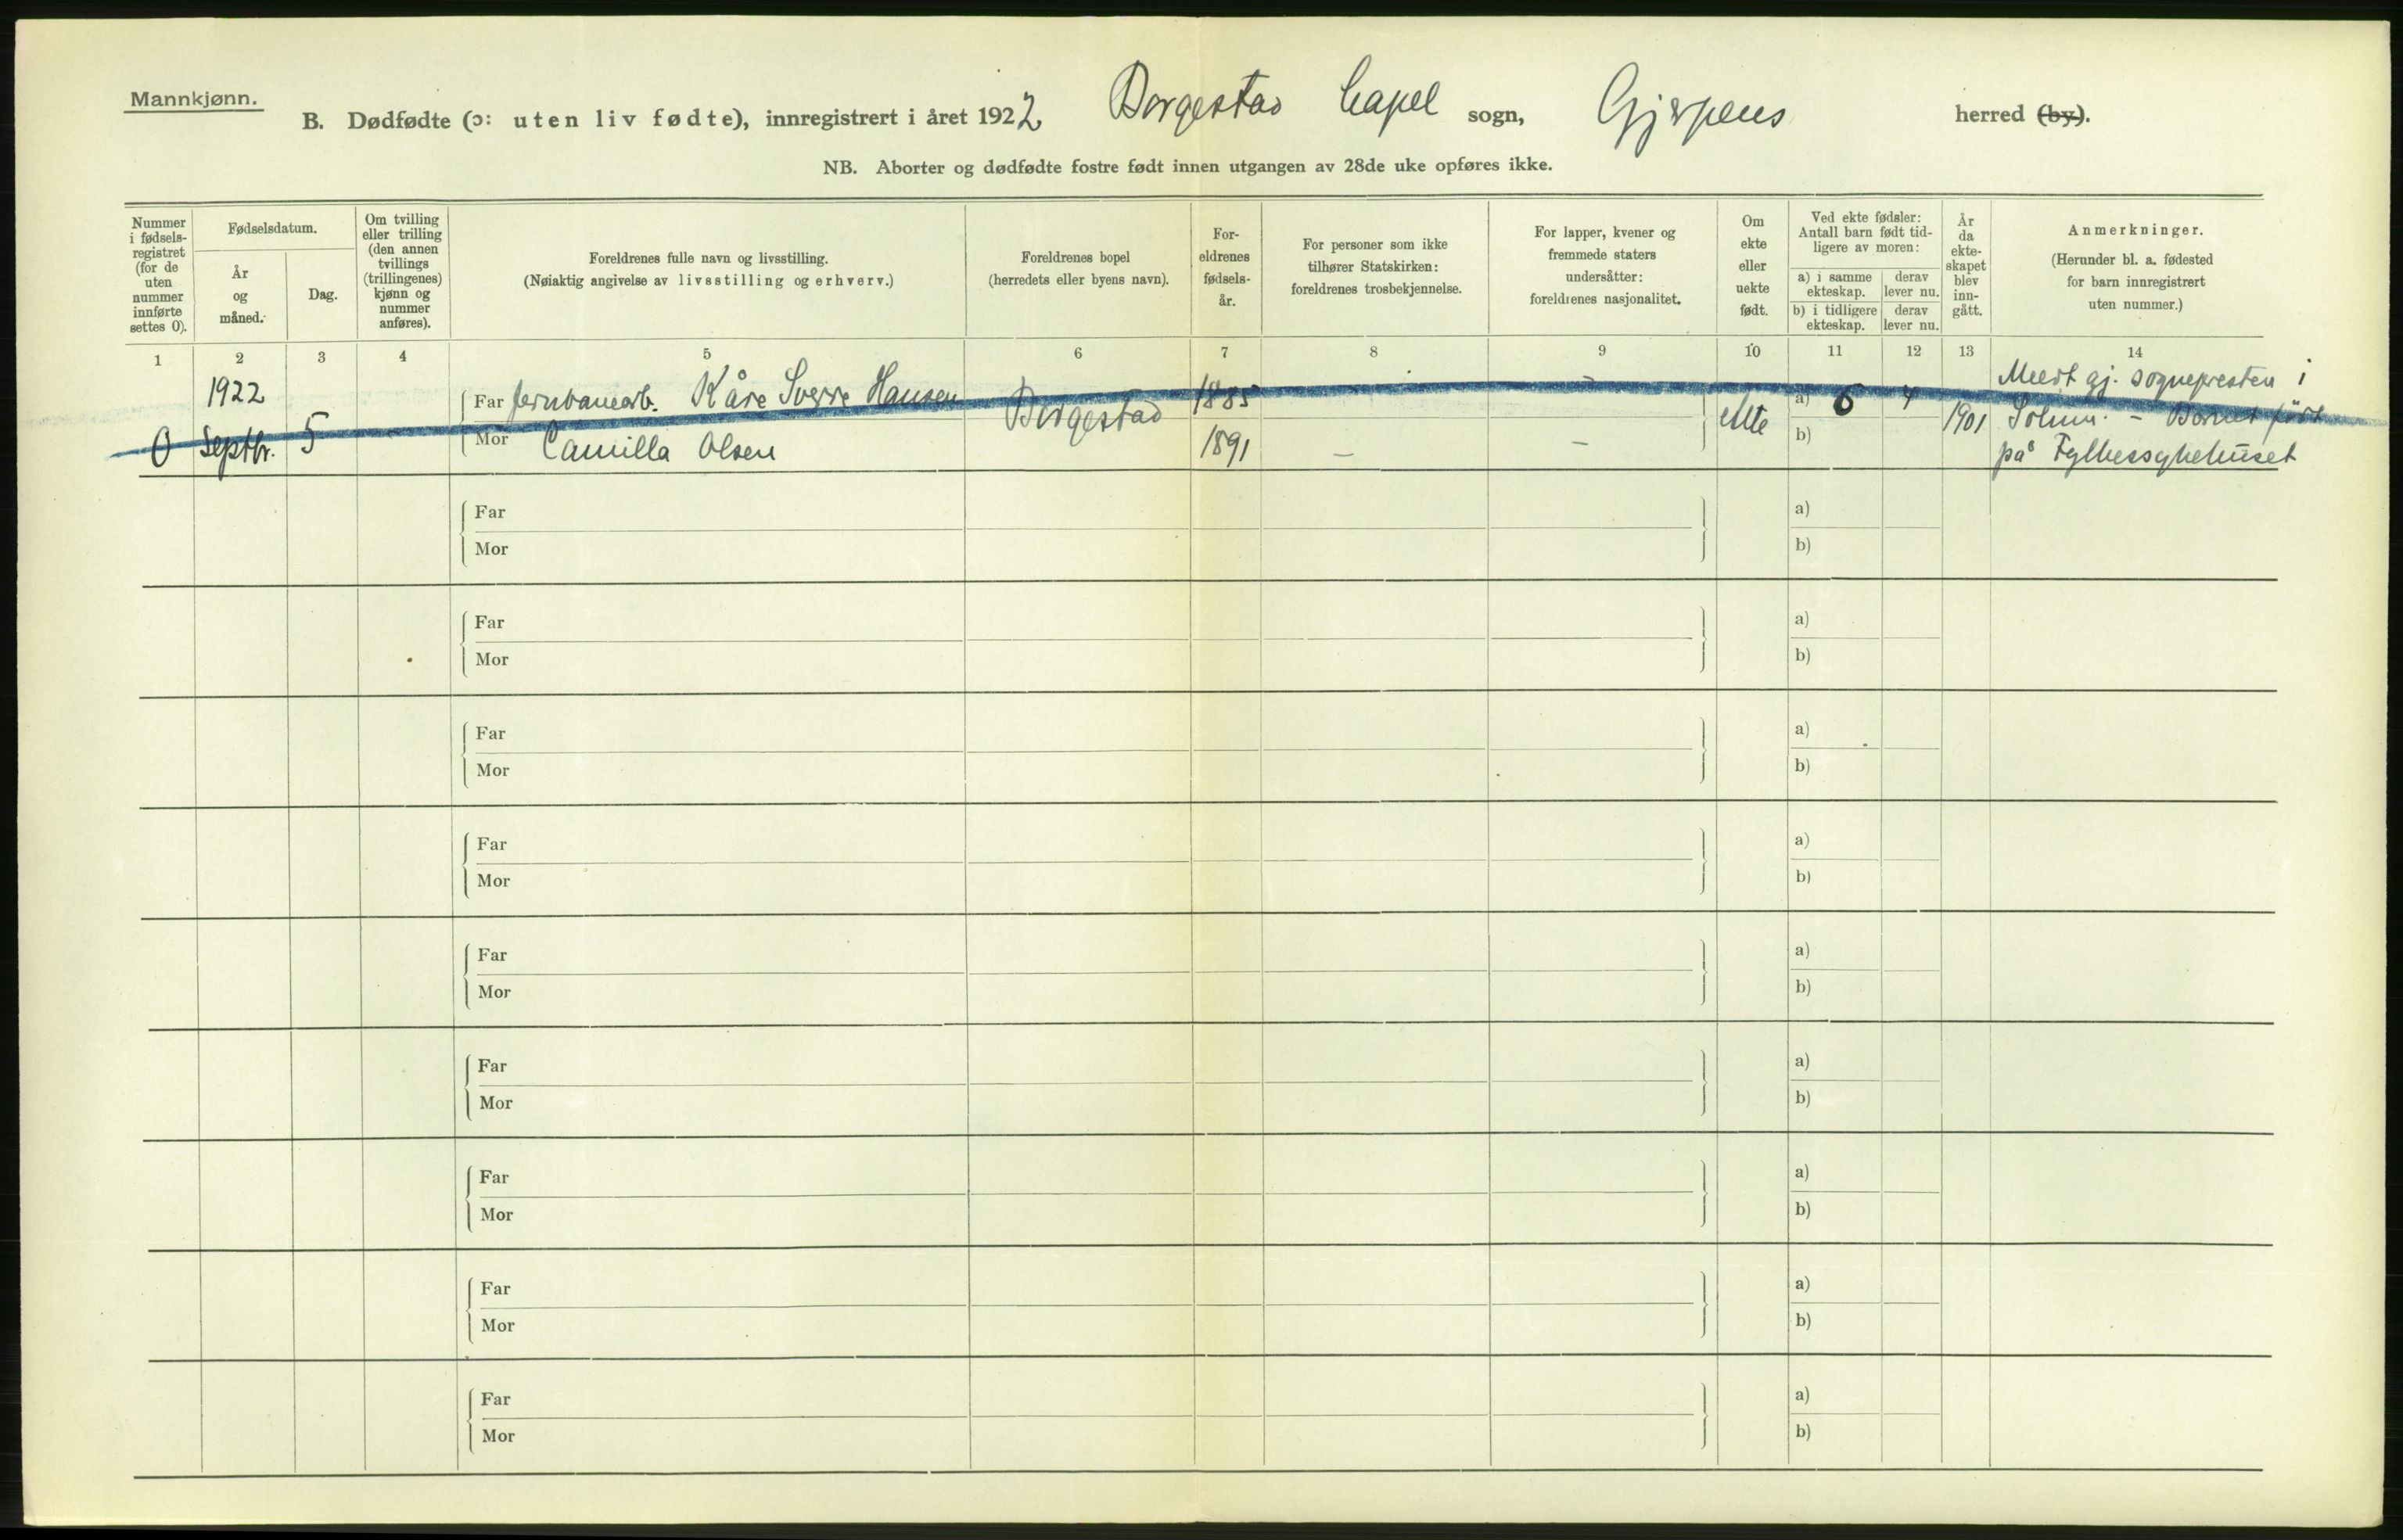 Mannkjønn.
B. Dødfødte (ɔ: uten liv fødte), innregistrert i året 1922 Borgestad Capel sogn, Gjerpens herred (by).
NB. Aborter og dødfødte fostre født innen utgangen av 28de uke opføres ikke.
Nummer i fødsels- registret (for de uten nummer innførte settes 0).
Fødselsdatum.
År og måned.
Dag.
Om tvilling eller trilling (den annen tvillings (trillingenes) kjønn og nummer anføres).
Foreldrenes fulle navn og livsstilling.
(Nøiaktig angivelse av livsstilling og erhverv.)
Foreldrenes bopel
(herredets eller byens navn).
For- eldrenes fødsels- år.
For personer som ikke tilhører Statskirken: foreldrenes trosbekjennelse.
For lapper, kvener og fremmede staters undersåtter: foreldrenes nasjonalitet.
Om ekte eller uekte født.
Ved ekte fødsler: Antall barn født tid- ligere av moren:
a) i samme ekteskap.
derav lever nu.
b) i tidligere ekteskap.
derav lever nu.
År da ekte- skapet blev inn- gått.
Anmerkninger.
(Herunder bl. a. fødested for barn innregistrert uten nummer.)
1 2 3 4 5 6 7 8 9 10 11 12 13 14
1922 Far Jernbanearb. Kåre Sverre Hansen Borgestad 1885 – a) 6 4 Meldt gj. sognepresten i
0 Septbr. 5 Mor Camilla Olsen 1891 – – ekte b) 1901 Solum. – Barnet født
på Fylkessykehuset
Far a)
Mor b)
Far a)
Mor b)
Far a)
Mor b)
Far a)
Mor b)
Far a)
Mor b)
Far a)
Mor b)
Far a)
Mor b)
Far a)
Mor b)
Far a)
Mor b)